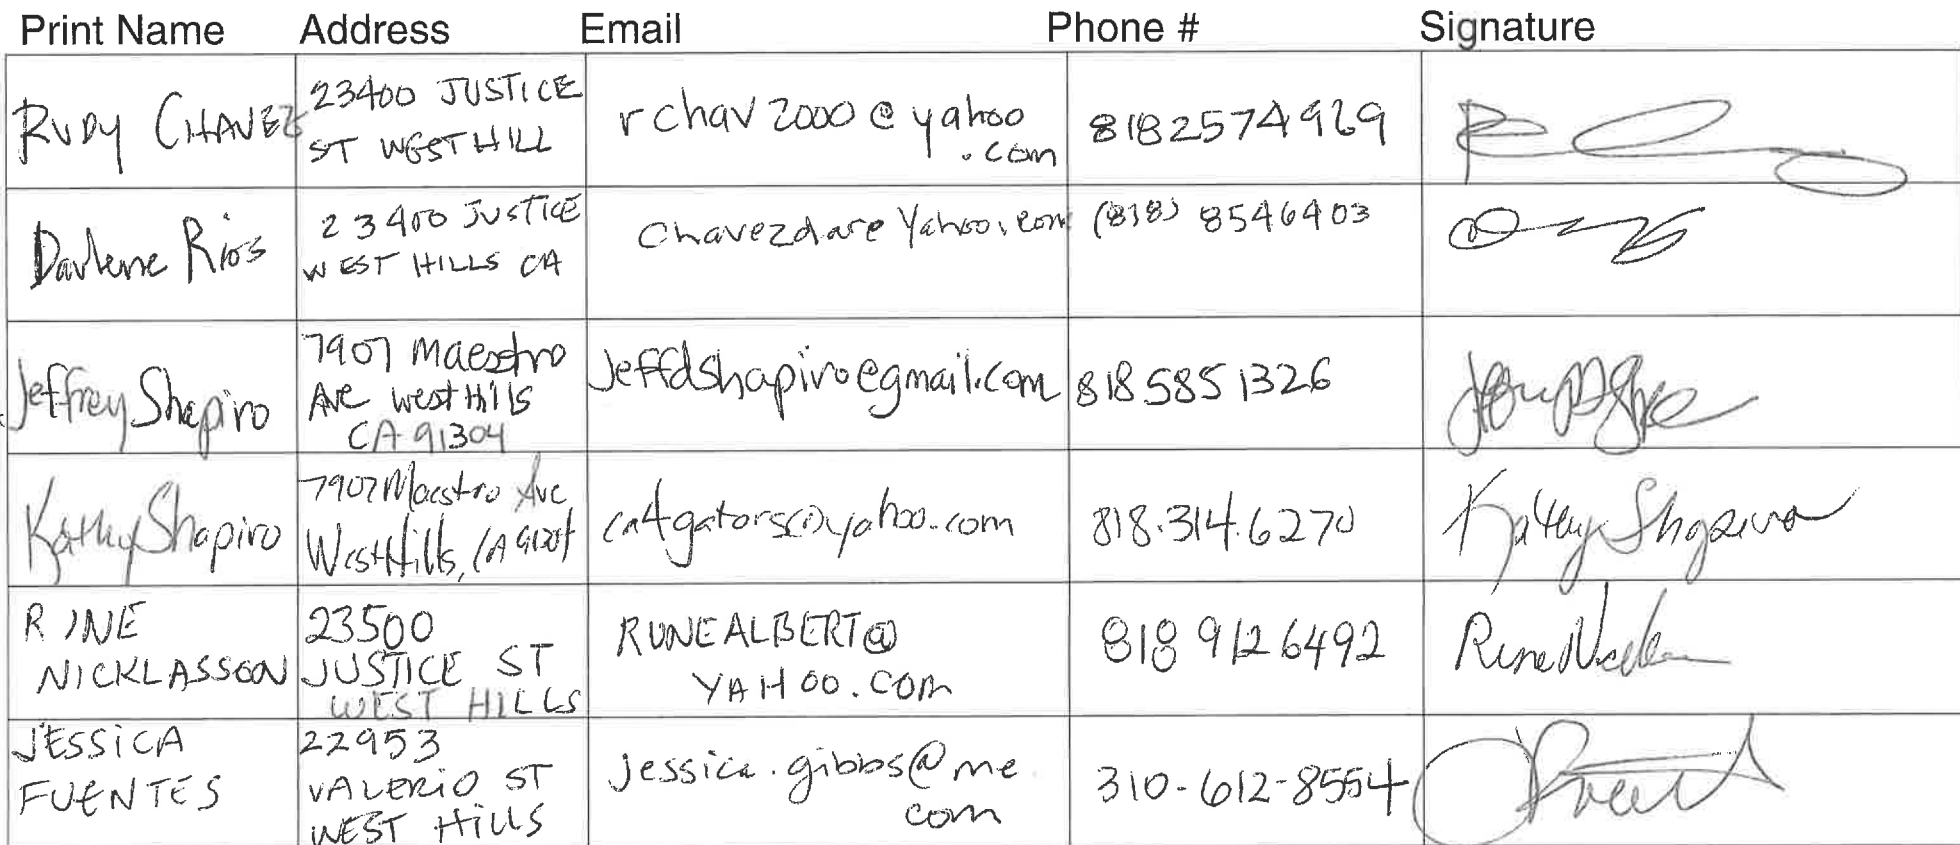 Print Name Address Email Phone # Signature
RUDY CHAVEZ
23400 JUSTICE
ST WEST HILL
rchav2000@yahoo
.com
8182574969
Darlene Rios
23400 JUSTICE
WEST HILLS CA
Chavezdare Yahoo.com
(818) 8546403
Jeffrey Shapiro
7907 Maestro
Ave west Hills
CA 91304
Jeffdshapiro@gmail.com
818 585 1326
Kathy Shapiro
7907 Maestro Ave
West Hills, CA 91304
ca4gators@yahoo.com
818.314.6270
Kathy Shapiro
RUNE
NICKLASSON
23500
JUSTICE ST
WEST HILLS
RUNEALBERT@
YAHOO.COM
818 912 6492
Rune
JESSICA
FUENTES
22953
VALERIO ST
WEST HILLS
jessica.gibbs@me
com
310-612-8554